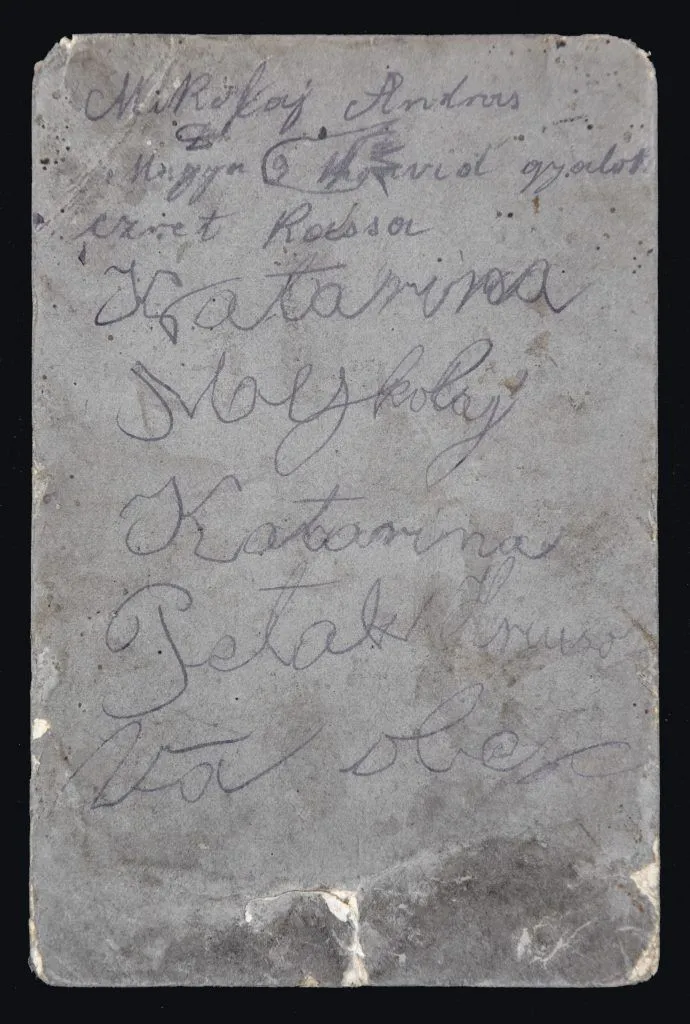 Mikolaj Andras
Magyr 9 Honvid gyalok
ezret Kassa
Katarina
Moykolaj
Katarina
Petak Hruso
Va obec